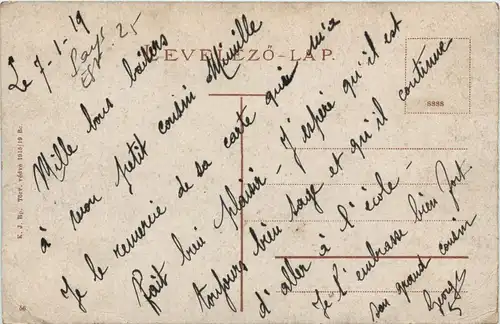 Le 7-1-19
LEVELEZŐ-LAP.
8888
Mille bons baisers
à mon petit cousin Mimille
Je le remercie de sa carte qui m'a
fait bien plaisir - J'espère qu'il est
toujours bien sage et qu'il continue
d'aller à l'école -
Je l'embrasse bien fort
son grand cousin
Georges
K. J. Bp. Törv. védve 1915/19 B.
56